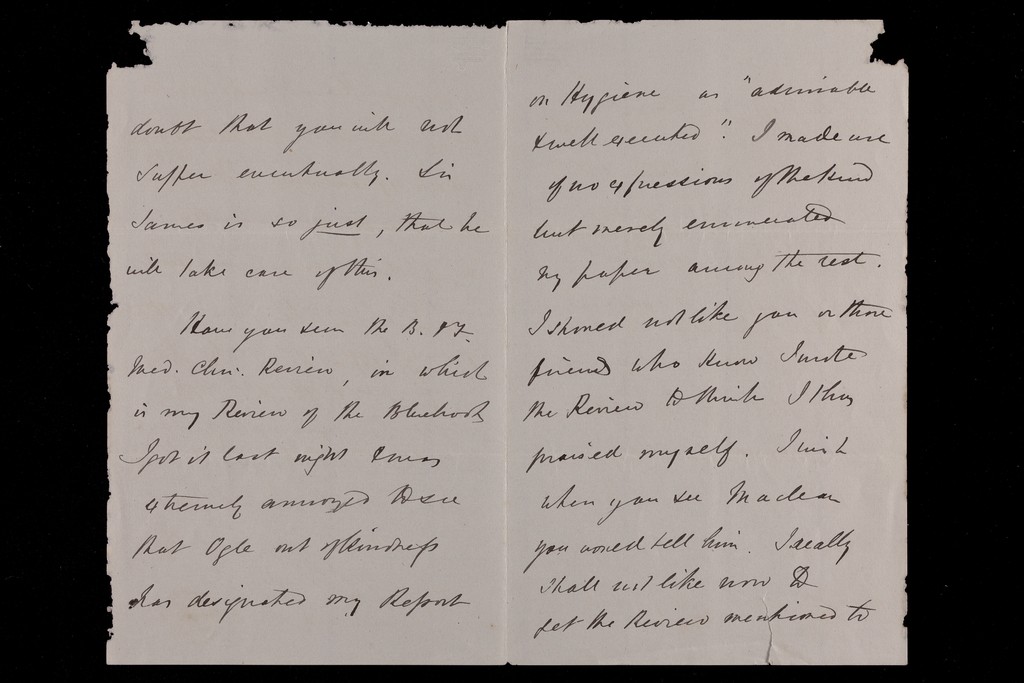 doubt that you will not
suffer eventually. Sir
James is so just, that he
will take care of this.
Have you seen the B. & F.
Med. Chir. Review, in which
is my Review of the Bluebook
I got it last night & was
extremely annoyed to see
that Ogle out of kindness
has designated my Report
on Hygiene as "admirable
& well executed". I made use
of no expressions of the kind
but merely enumerated
my paper among the rest.
I should not like you or those
friends who know I wrote
the Review to think I thus
praised myself. I wish
when you see Maclean
you would tell him. I really
shall not like now to
let the Review mentioned to